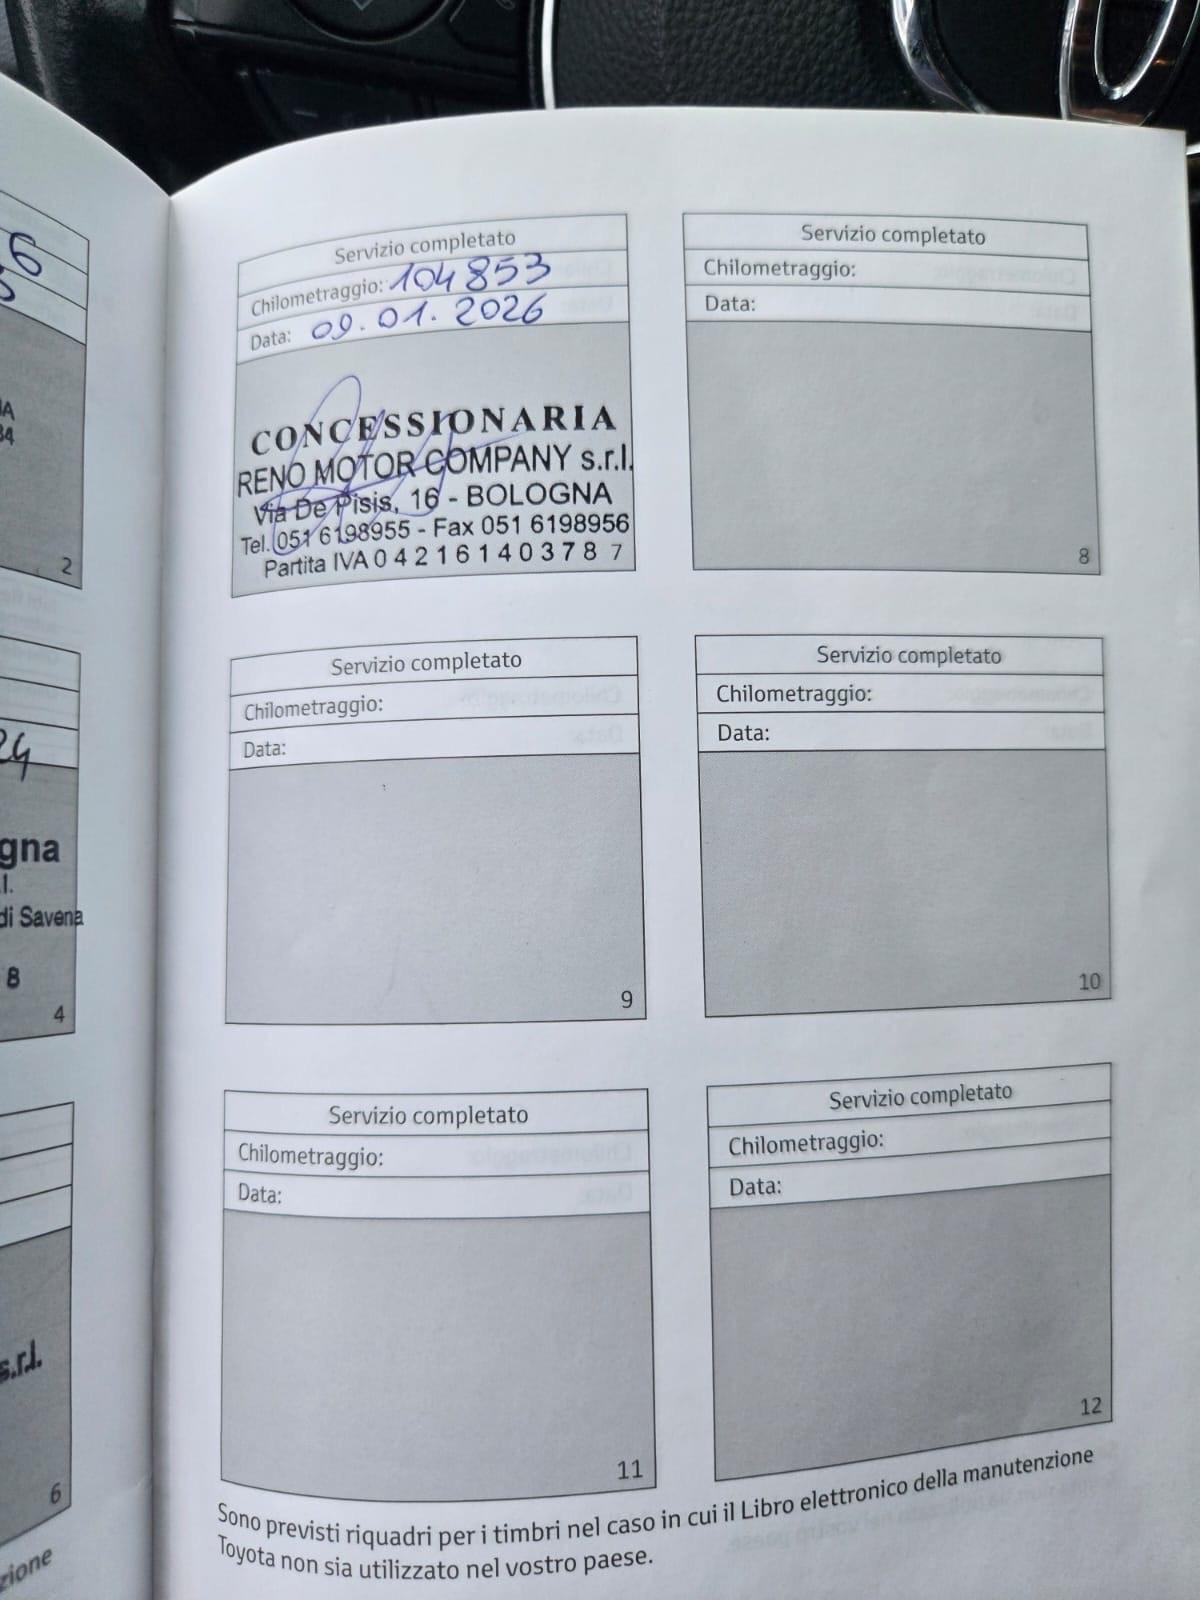 6
A
34
2
24
gna
.l.
di Savena
8
4
s.r.l.
6
zione
Servizio completato
Chilometraggio: 104 853
Data: 09.01.2026
CONCESSIONARIA
RENO MOTOR COMPANY s.r.l.
Via De Pisis, 16 - BOLOGNA
Tel. 051 6198955 - Fax 051 6198956
Partita IVA 0 4 2 1 6 1 4 0 3 7 8
7
Servizio completato
Chilometraggio:
Data:
8
Servizio completato
Chilometraggio:
Data:
9
Servizio completato
Chilometraggio:
Data:
10
Servizio completato
Chilometraggio:
Data:
11
Servizio completato
Chilometraggio:
Data:
12
Sono previsti riquadri per i timbri nel caso in cui il Libro elettronico della manutenzione
Toyota non sia utilizzato nel vostro paese.